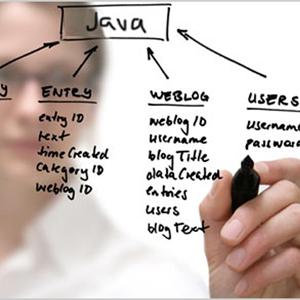 Java
Y
ENTRY
entry ID
text
timeCreated
category ID
weblog ID
WEBLOG
weblog ID
username
blogTitle
dataCreated
entries
users
blogText
USERS
username
password